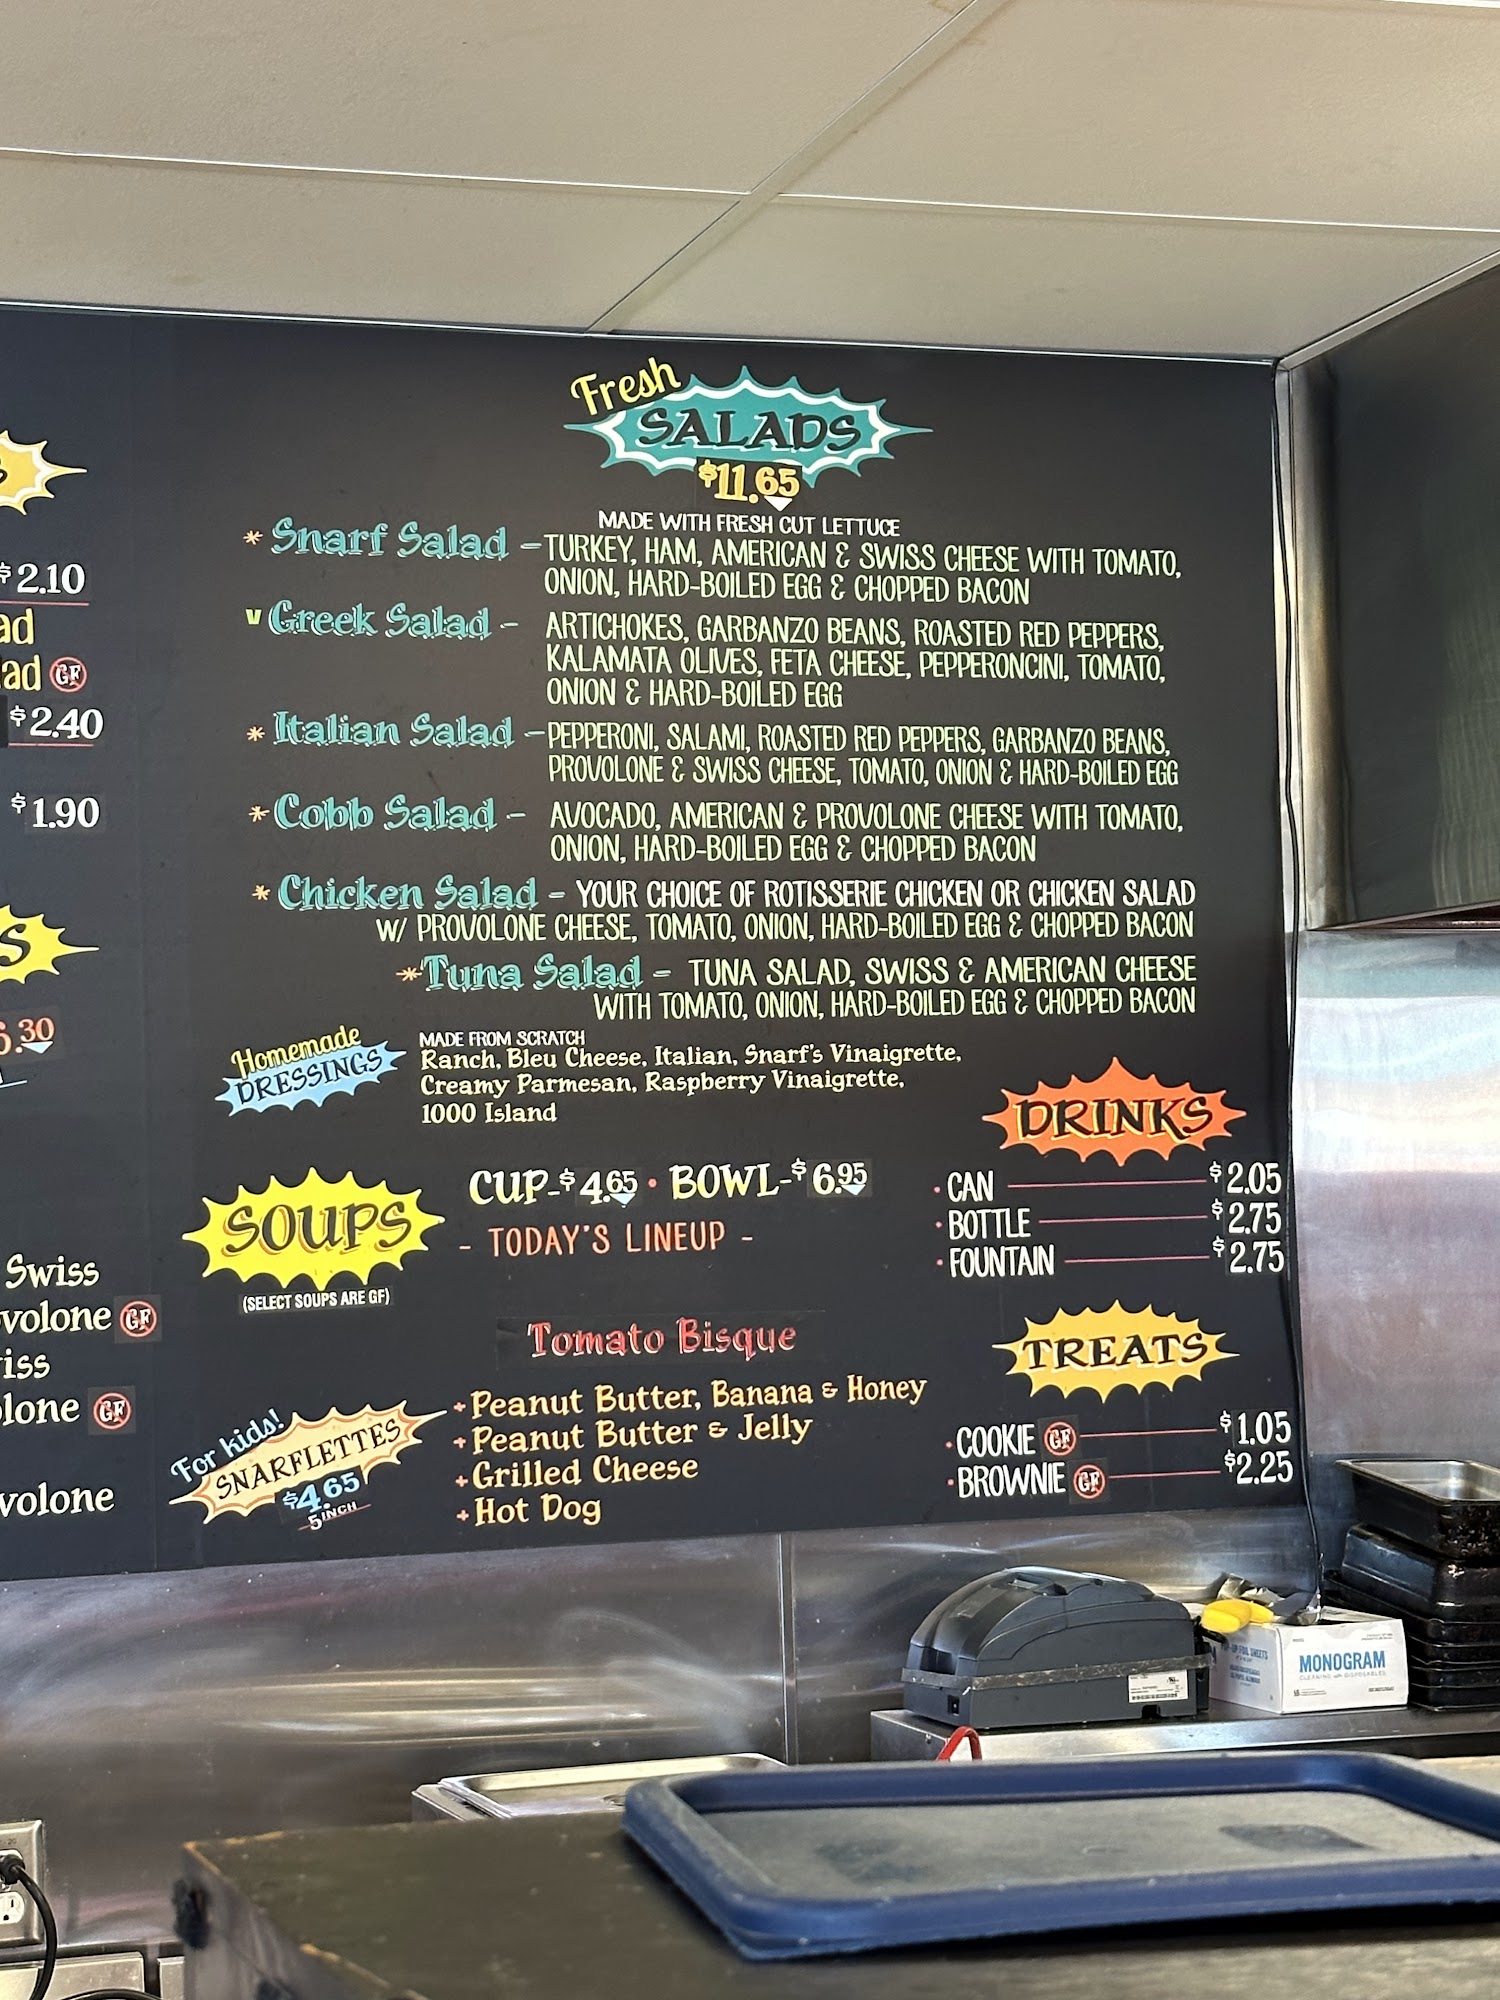 $2.10
$2.40
$1.90
Swiss
GF
GF
GF
Fresh
SALADS
$11.65
MADE WITH FRESH CUT LETTUCE
* Snarf Salad – TURKEY, HAM, AMERICAN & SWISS CHEESE WITH TOMATO,
ONION, HARD-BOILED EGG & CHOPPED BACON
V Greek Salad – ARTICHOKES, GARBANZO BEANS, ROASTED RED PEPPERS,
KALAMATA OLIVES, FETA CHEESE, PEPPERONCINI, TOMATO,
ONION & HARD-BOILED EGG
* Italian Salad – PEPPERONI, SALAMI, ROASTED RED PEPPERS, GARBANZO BEANS,
PROVOLONE & SWISS CHEESE, TOMATO, ONION & HARD-BOILED EGG
* Cobb Salad – AVOCADO, AMERICAN & PROVOLONE CHEESE WITH TOMATO,
ONION, HARD-BOILED EGG & CHOPPED BACON
* Chicken Salad – YOUR CHOICE OF ROTISSERIE CHICKEN OR CHICKEN SALAD
W/ PROVOLONE CHEESE, TOMATO, ONION, HARD-BOILED EGG & CHOPPED BACON
* Tuna Salad – TUNA SALAD, SWISS & AMERICAN CHEESE
WITH TOMATO, ONION, HARD-BOILED EGG & CHOPPED BACON
Homemade
DRESSINGS
MADE FROM SCRATCH
Ranch, Bleu Cheese, Italian, Snarf's Vinaigrette,
Creamy Parmesan, Raspberry Vinaigrette,
1000 Island
SOUPS
(SELECT SOUPS ARE GF)
CUP-$4.65 • BOWL-$6.95
- TODAY'S LINEUP -
Tomato Bisque
For kids!
SNARFLETTES
$4.65
5 INCH
+ Peanut Butter, Banana & Honey
+ Peanut Butter & Jelly
+ Grilled Cheese
+ Hot Dog
DRINKS
• CAN $2.05
• BOTTLE $2.75
• FOUNTAIN $2.75
TREATS
• COOKIE GF $1.05
• BROWNIE GF $2.25
MONOGRAM